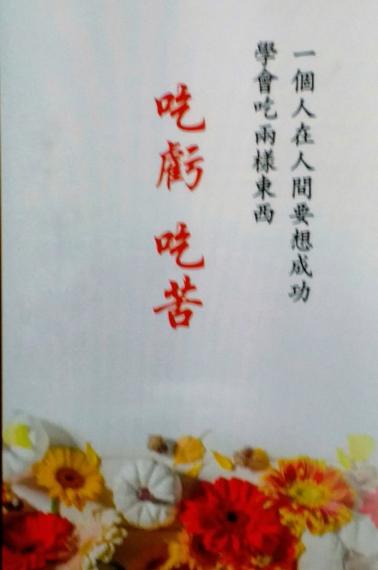 一個人在人間要想成功
學會吃兩樣東西
吃虧 吃苦